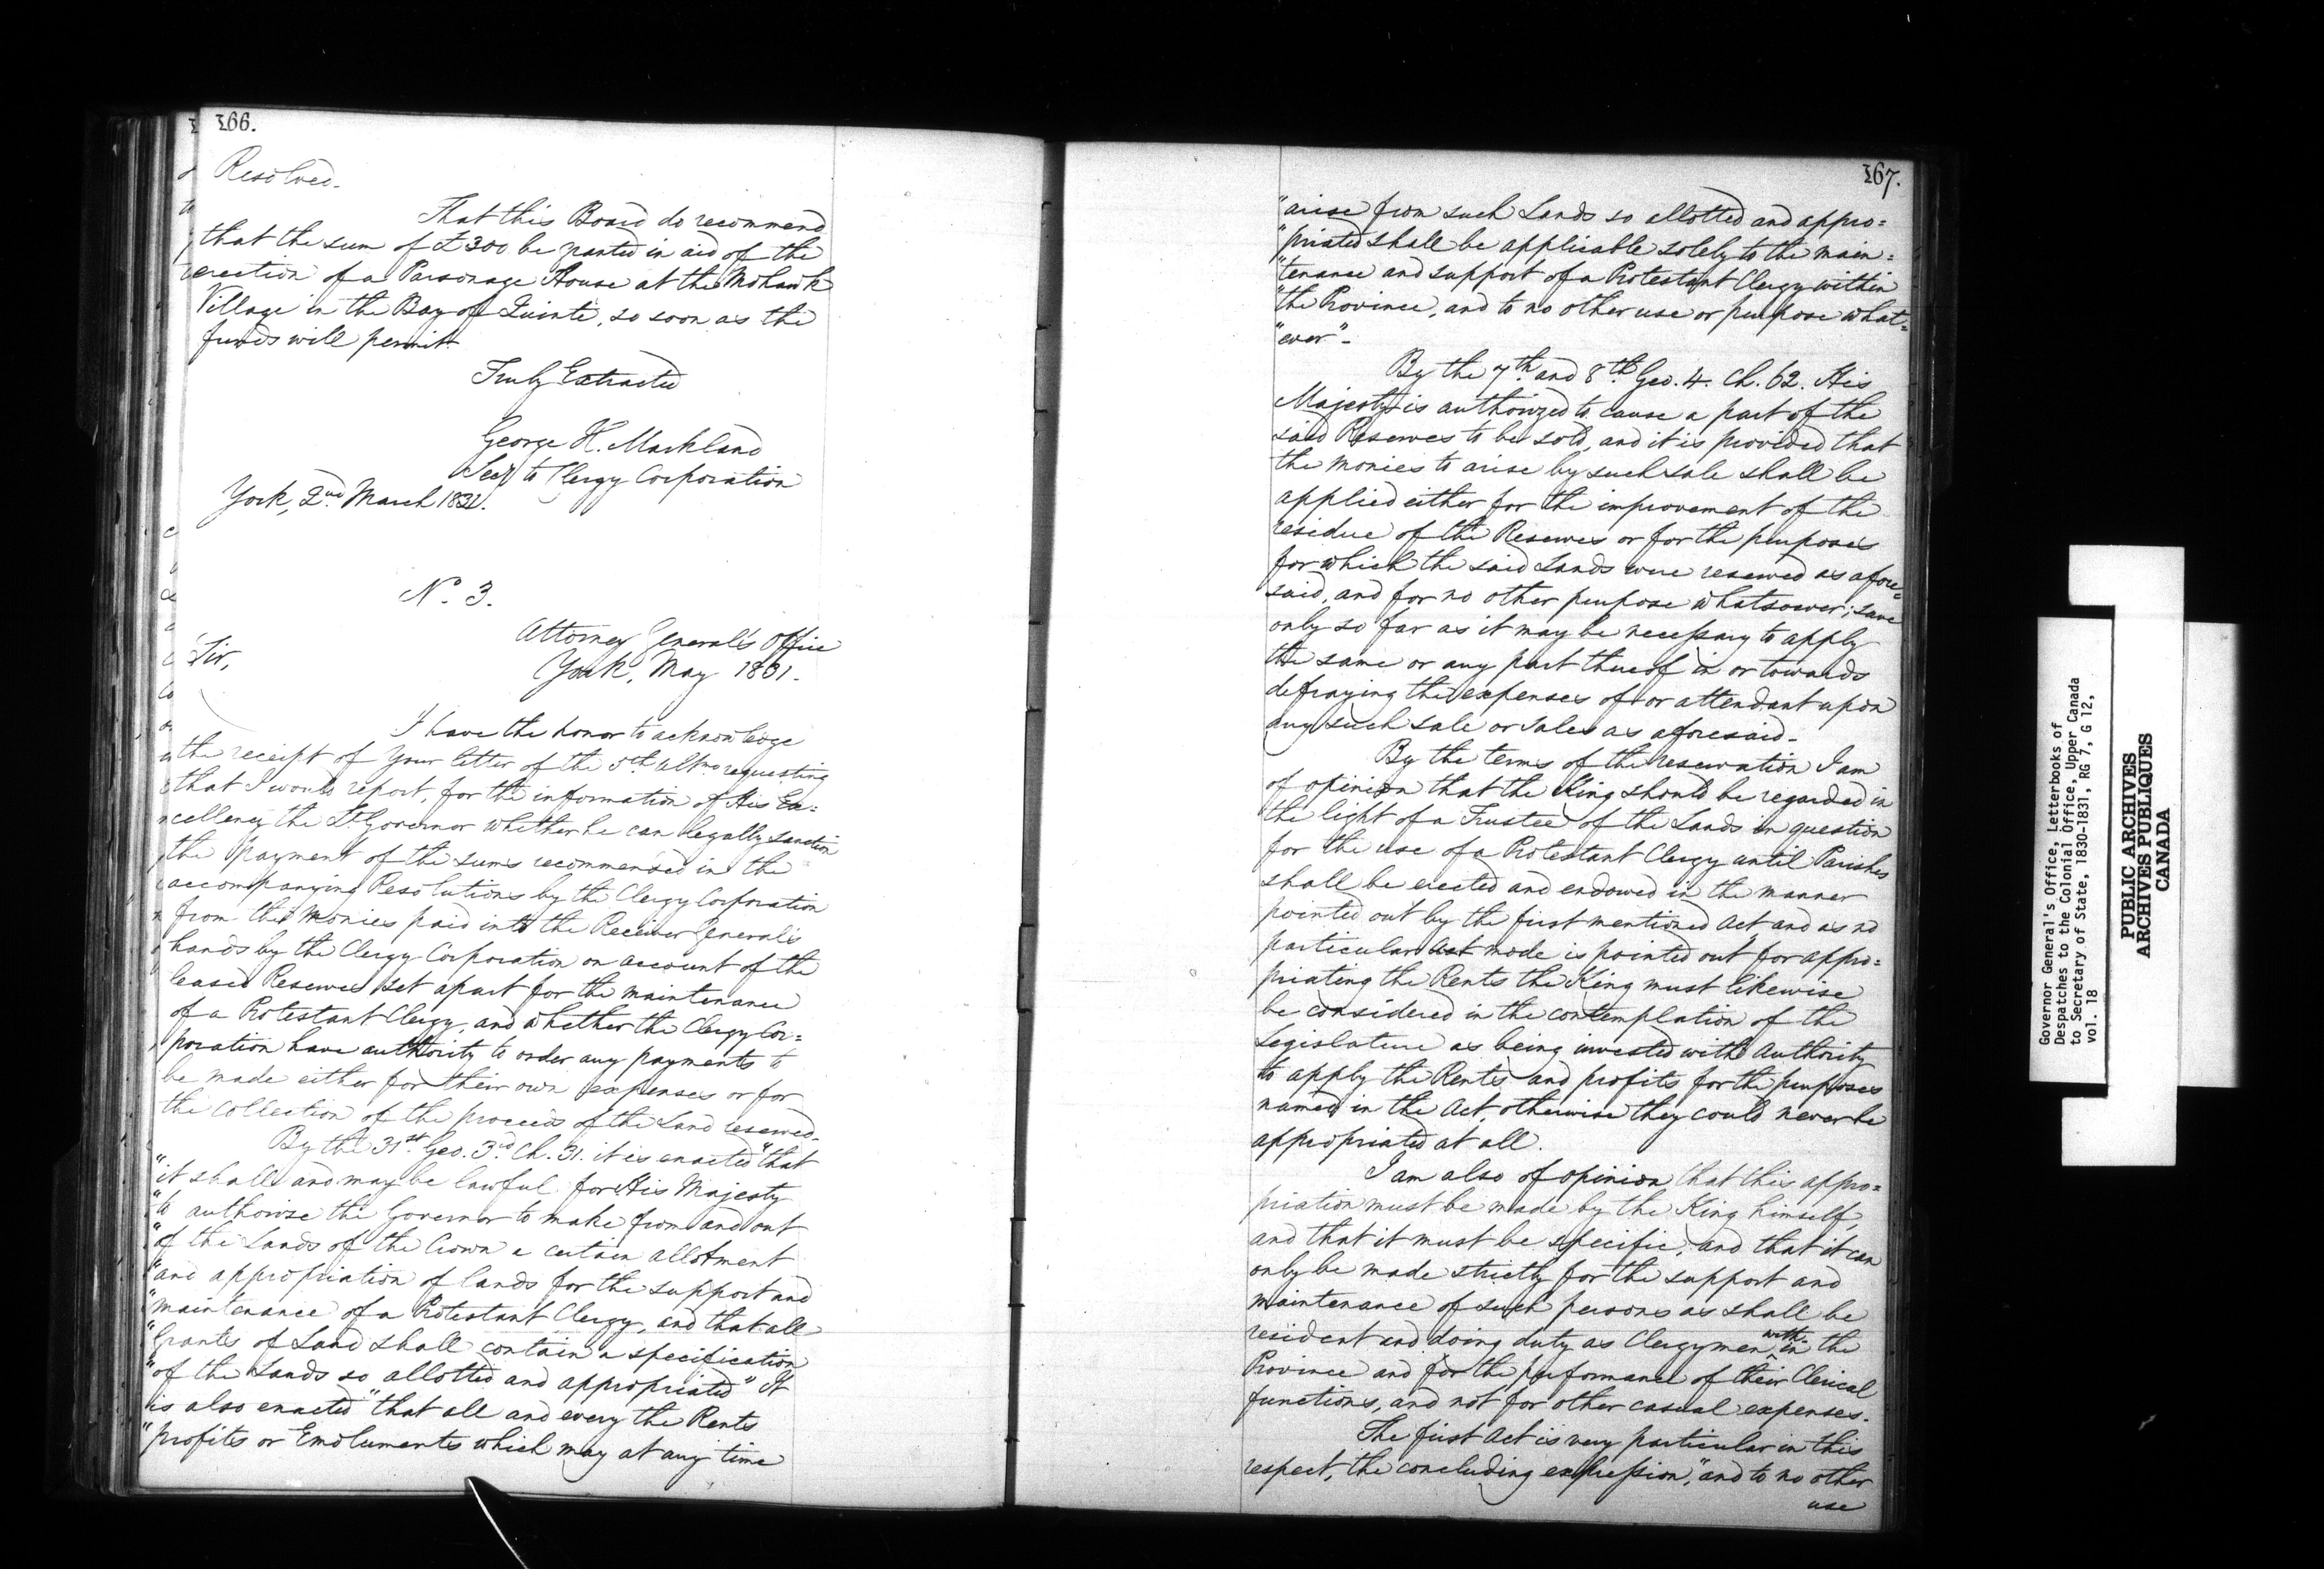 166.
Resolved.
That this Board do recommend
that the sum of £300 be granted in aid of the
erection of a Parsonage House at the Mohawk
Village in the Bay of Quinte, so soon as the
funds will permit.
Truly Extracted
George H. Markland
Secy to Clergy Corporation
York, 2nd March 1831.
No. 3.
Attorney General's Office
York, May 1831.
Sir,
I have the honor to acknowledge
the receipt of your letter of the 5th Ultmo requesting
that I would report, for the information of His Ex=
cellency the Lt. Governor whether he can legally sanction
the payment of the sums recommended in the
accompanying Resolutions by the Clergy Corporation
from the monies paid into the Receiver General's
hands by the Clergy Corporation on account of the
leased Reserves set apart for the maintenance
of a Protestant Clergy, and whether the Clergy Cor=
poration have authority to order any payments to
be made either for their own expenses or for
the collection of the proceeds of the Land reserved.
By the 31st Geo. 3rd Ch. 31. it is enacted "that
"it shall and may be lawful for His Majesty
"to authorise the Governor to make from and out
"of the Lands of the Crown a certain allotment
"and appropriation of lands for the support and
"maintenance of a Protestant Clergy, and that all
"Grants of Land shall contain a specification
"of the Lands so allotted and appropriated" It
is also enacted "that all and every the Rents
"profits or Emoluments which may at any time
167.
"arise from such Lands so allotted and appro=
"priated shall be applicable solely to the main=
"tenance and support of a Protestant Clergy within
"the Province, and to no other use or purpose what=
"ever"-
By the 7th and 8th Geo. 4. Ch. 62. His
Majesty is authorized to cause a part of the
said Reserves to be sold, and it is provided that
the monies to arise by such sale shall be
applied either for the improvement of the
residue of the Reserves or for the purposes
for which the said Lands were reserved as afore=
said, and for no other purpose whatsoever; save
only so far as it may be necessary to apply
the same or any part thereof in or towards
defraying the expenses of or attendant upon
any such sale or sales as aforesaid.
By the terms of the reservation I am
of opinion that the King should be regarded in
the light of a Trustee of the Lands in question
for the use of a Protestant Clergy until Parishes
shall be erected and endowed in the manner
pointed out by the first mentioned Act and as no
particular act mode is pointed out for appro=
priating the Rents the King must likewise
be considered in the contemplation of the
Legislature as being invested with Authority
to apply the Rents and profits for the purposes
named in the Act, otherwise they could never be
appropriated at all.
I am also of opinion that this appro=
priation must be made by the King himself,
and that it must be specific, and that it can
only be made strictly for the support and
maintenance of such persons as shall be
resident and doing duty as Clergymen within the
Province and for the performance of their Clerical
functions, and not for other casual expenses.
The first Act is very particular in this
respect, the concluding expression, "and to no other
use
Governor General's Office, Letterbooks of
Despatches to the Colonial Office, Upper Canada
to Secretary of State, 1830-1831, RG 7, G 12,
vol. 18
PUBLIC ARCHIVES
ARCHIVES PUBLIQUES
CANADA